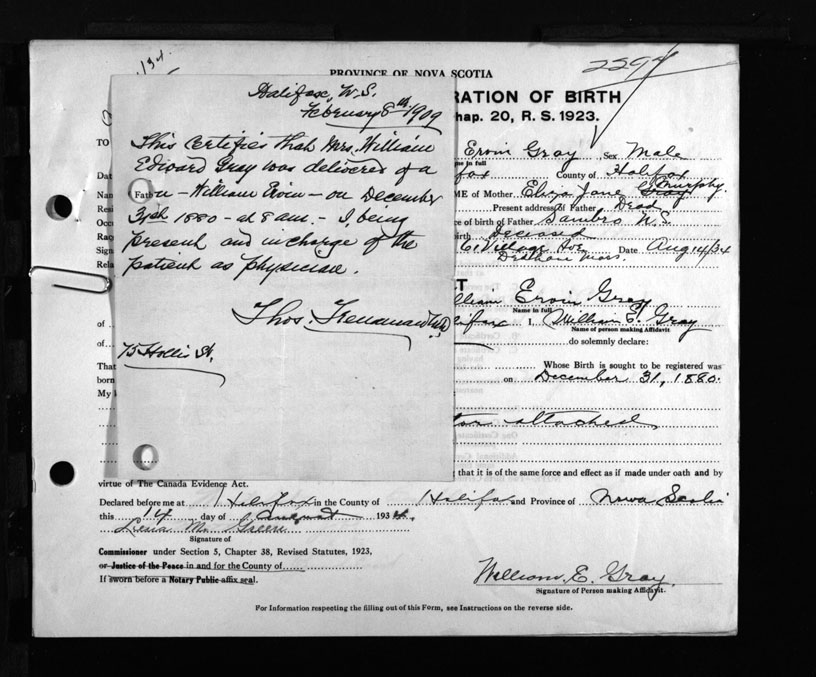 134
PROVINCE OF NOVA SCOTIA
2294
RATION OF BIRTH
hap. 20, R. S. 1923.
Halifax, N.S.
February 8th 1909
This certifies that Mrs. William
Edward Gray was delivered of a
on December
31st 1880 - at 8 am. - I, being
present and in charge of the
patient as physician.
Thos.
75 Hollis St.
TO
Ervin Gray Sex Male
e in full
fax County of Halifax
Dat
Nam
ME of Mother Eliza Jane Gray Murphy
Fath
Resi
Present address of Father Dead
Occ
ce of birth of Father Sambro N.S.
Rac
irth Deceased
Sign
Village Ave Date Aug 14/34
Rela
Dedham Mass.
CT
illiam Ervin Gray
Name in full
of
lifax I, William E. Gray
Name of person making Affidavit
of
do solemnly declare:
That
Whose Birth is sought to be registered was
born
on December 31, 1880.
My
tor attached
g that it is of the same force and effect as if made under oath and by
virtue of The Canada Evidence Act.
Declared before me at Halifax in the County of Halifax and Province of Nova Scotia
this 14 day of August 1934.
Lena M. Greene
Signature of
Commissioner under Section 5, Chapter 38, Revised Statutes, 1923,
or Justice of the Peace in and for the County of
If sworn before a Notary Public affix seal.
William E. Gray.
Signature of Person making Affidavit.
For Information respecting the filling out of this Form, see Instructions on the reverse side.